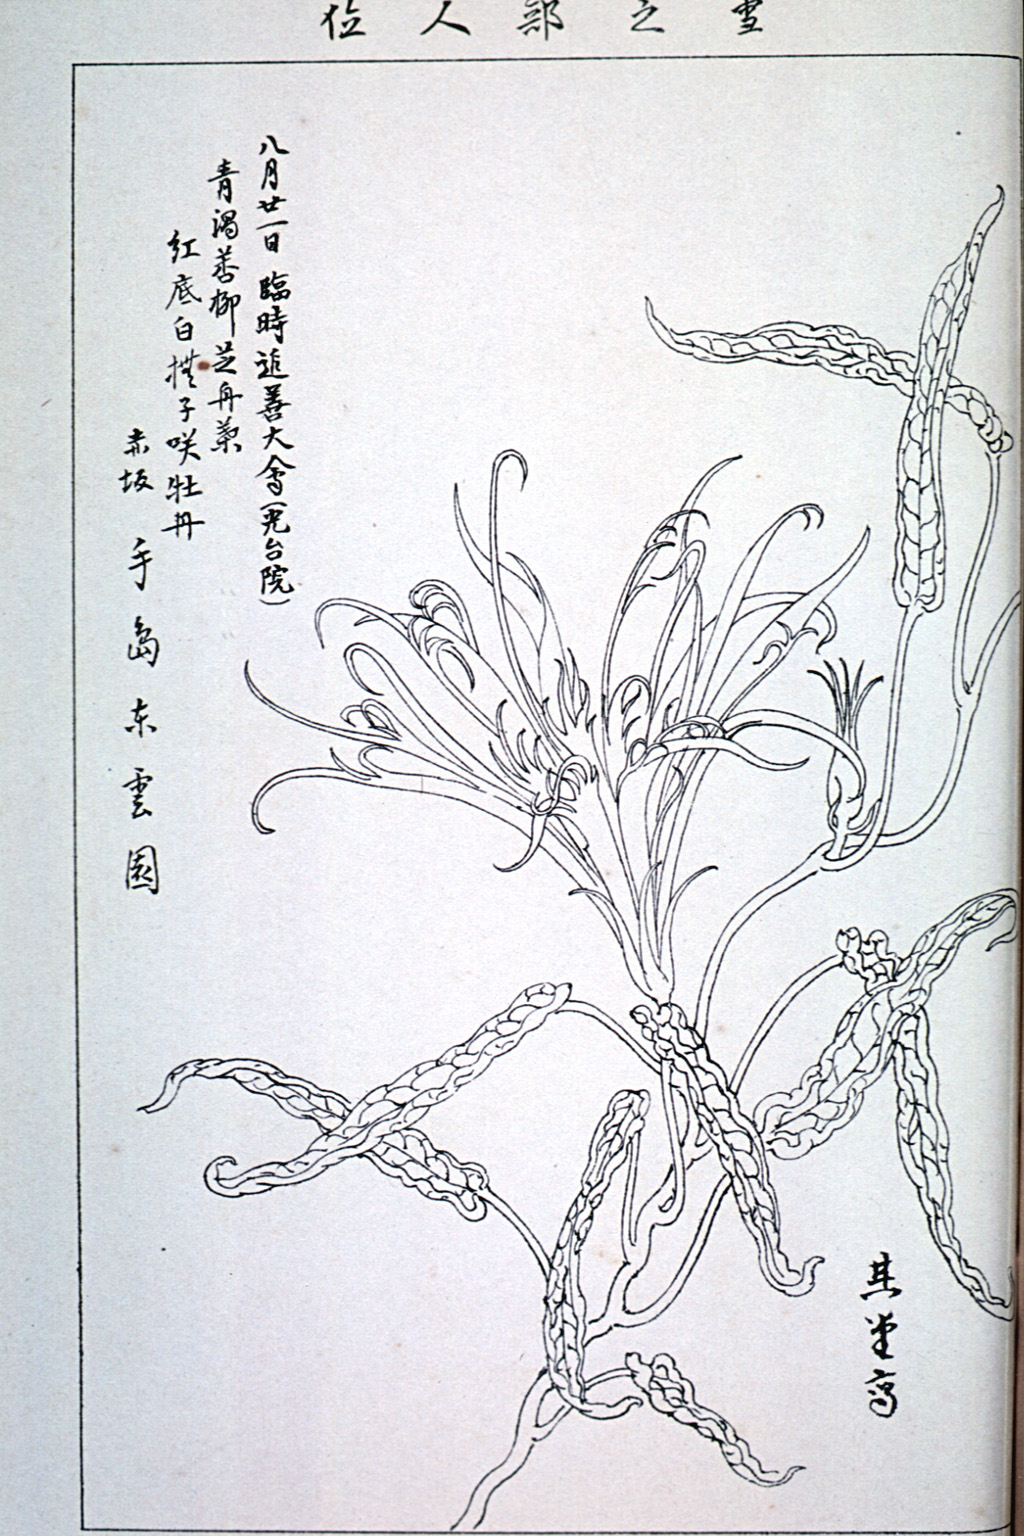 雪之部人位
八月廿一日 臨時追善大會(完台院)
青渴善柳芝舟葉
紅底白撫子咲牡丹
赤坂 手島东雲園
其堂寫